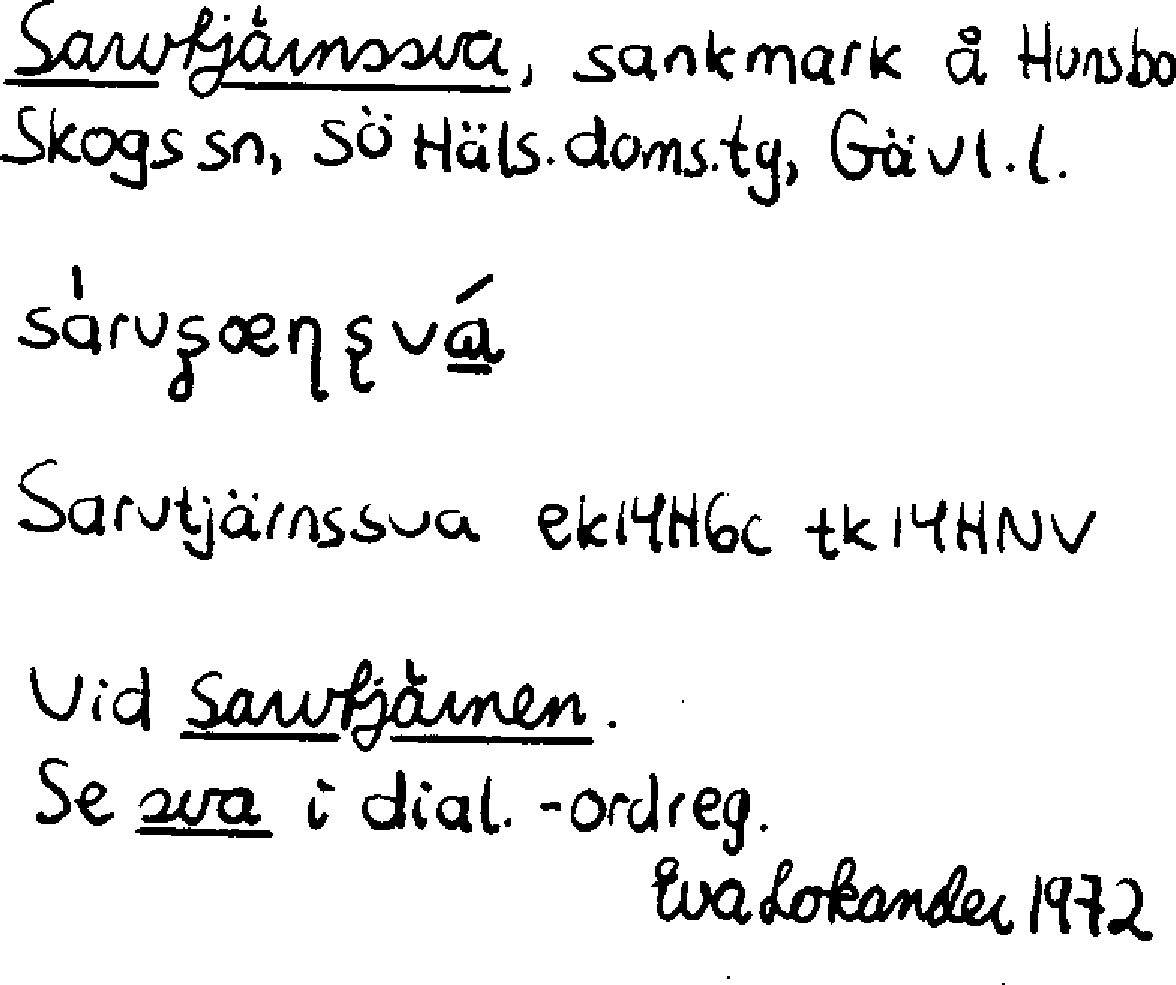 Sarvtjärnssva, sankmark å Hunsbo
Skogs sn, Sö Häls. doms.tg, Gävl. l.
Sarvtjärnssva ek14H6c tk14HNV
Vid Sarvtjärnen.
Se sva i dial. -ordreg.
Eva Lokander 1972